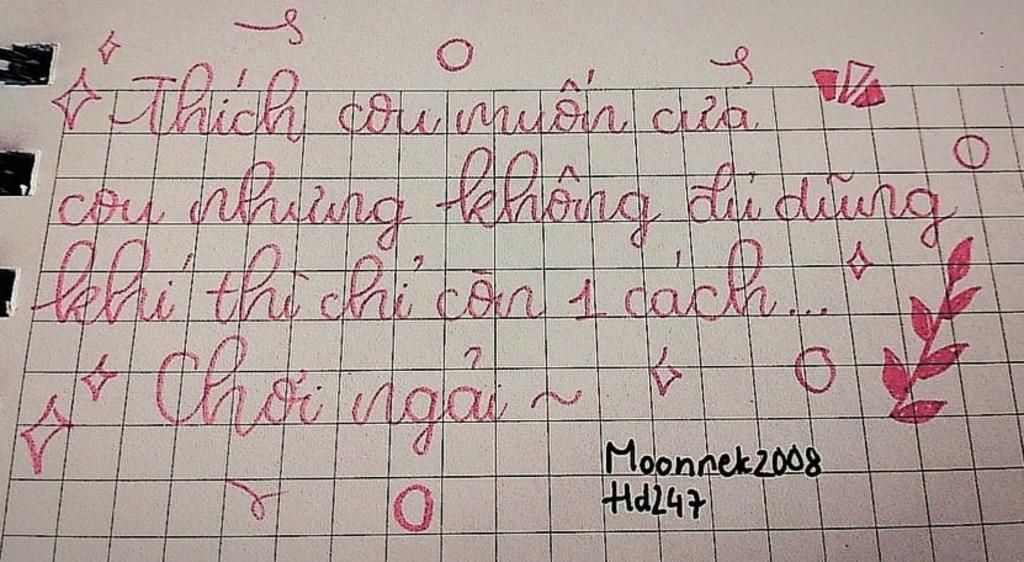 Thích cậu muốn cưa
cậu nhưng không đủ dũng
khí thì chỉ còn 1 cách...
Chơi ngải ~
Moonnek2008
Hd247